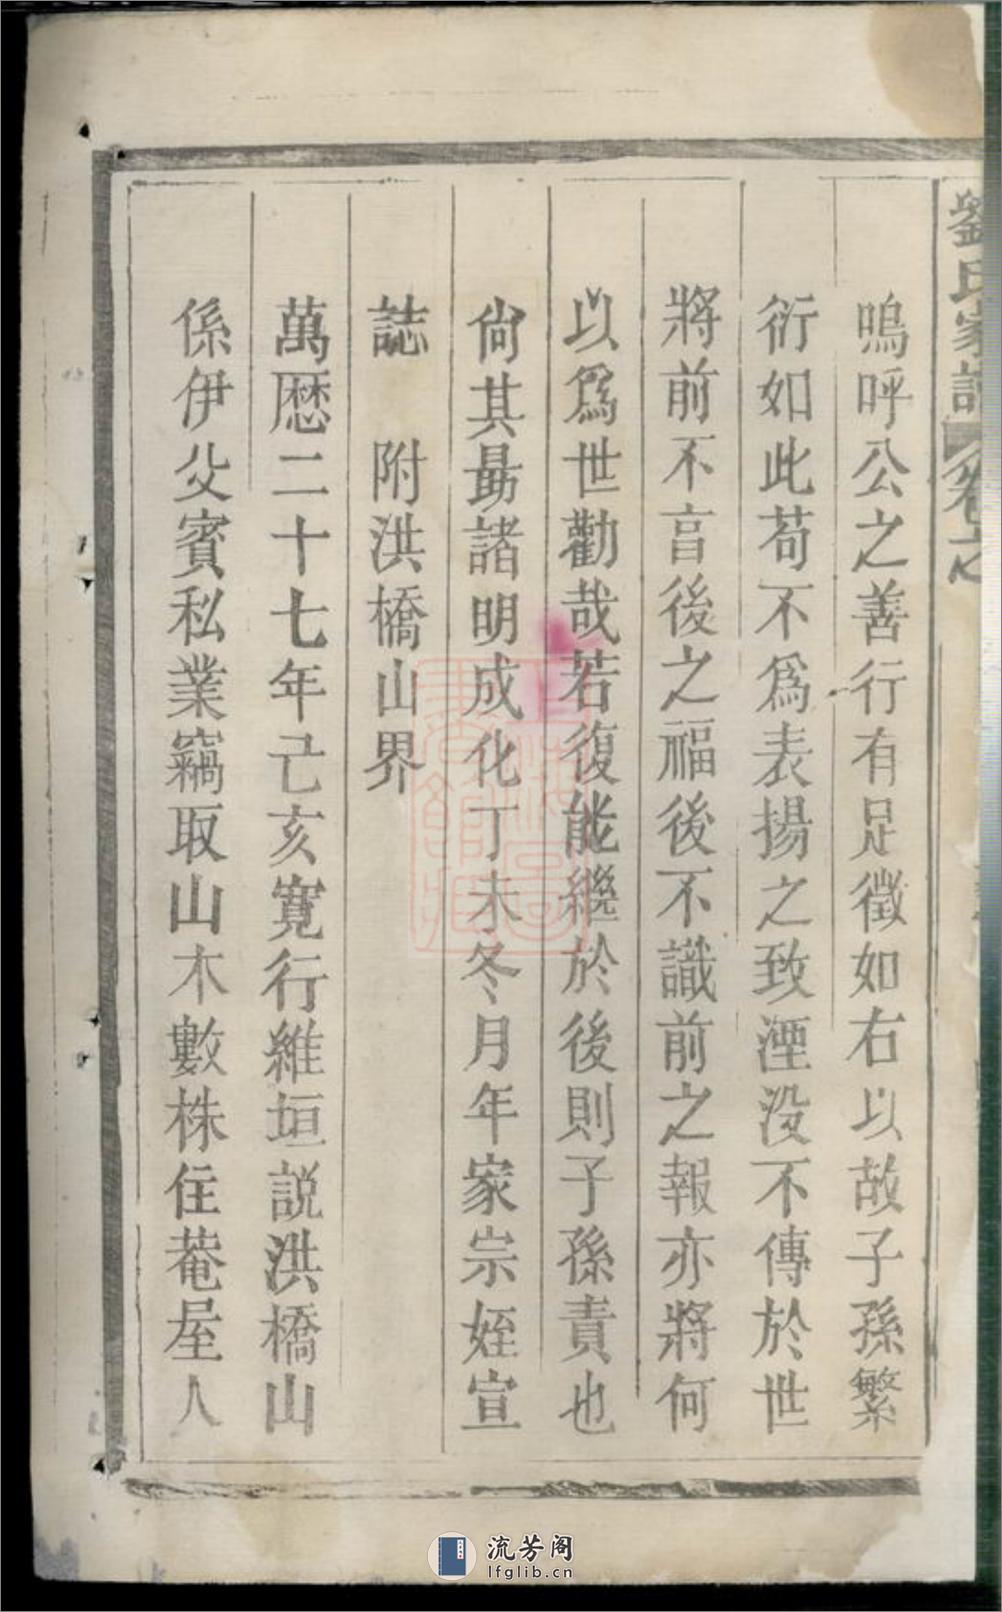 劉氏家譜 卷之
嗚呼公之善行有足徵如右以故子孫繁
衍如此苟不爲表揚之致湮没不傳於世
將前不盲後之福後不識前之報亦將何
以爲世勸哉若復能繼於後則子孫責也
尙其勗諸明成化丁未冬月年家宗姪宣
誌 附洪橋山界
萬曆二十七年己亥寬行維垣説洪橋山
係伊父賓私業竊取山木數株住菴屋人
流芳阁
lfglib.cn